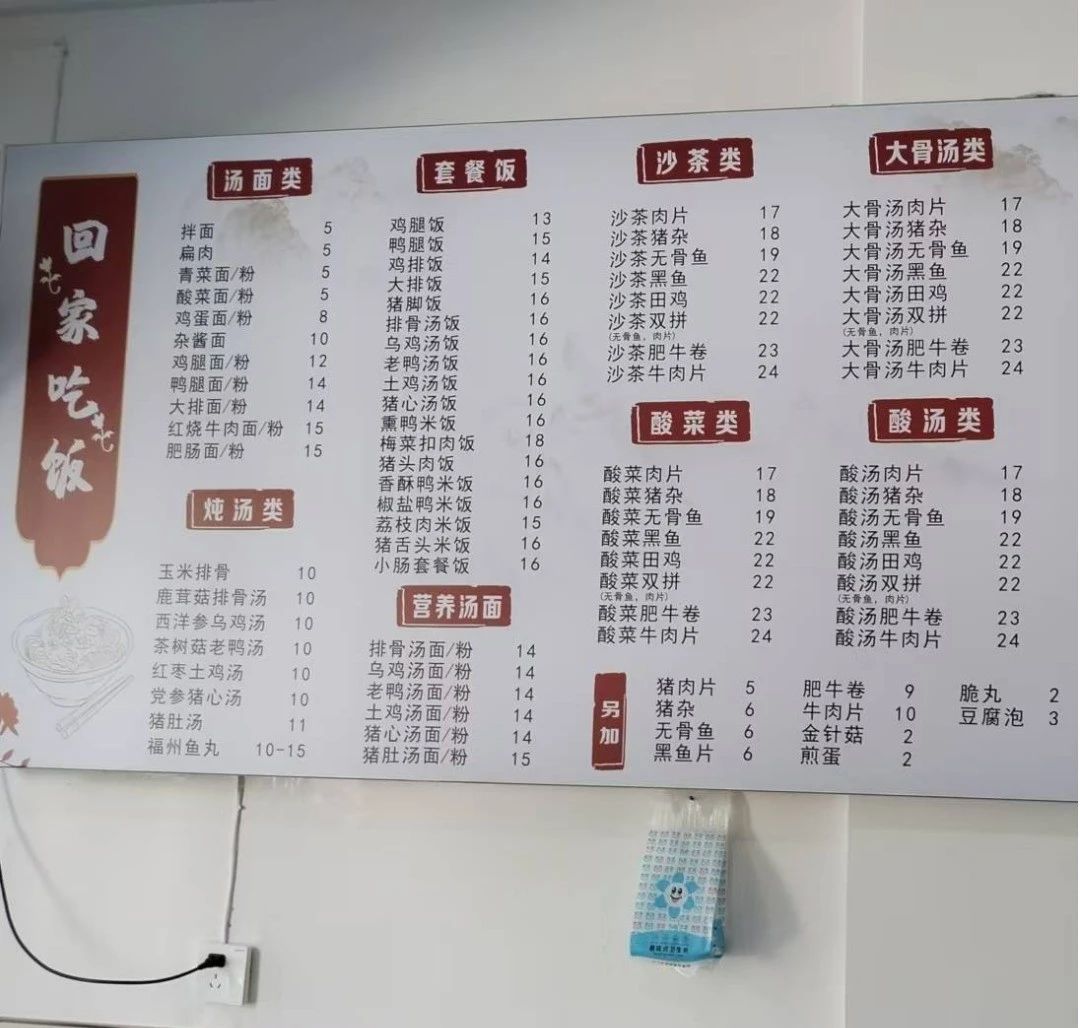 回家吃饭
汤面类
拌面 5
扁肉 5
青菜面/粉 5
酸菜面/粉 5
鸡蛋面/粉 8
杂酱面 10
鸡腿面/粉 12
鸭腿面/粉 14
大排面/粉 14
红烧牛肉面/粉 15
肥肠面/粉 15
炖汤类
玉米排骨 10
鹿茸菇排骨汤 10
西洋参乌鸡汤 10
茶树菇老鸭汤 10
红枣土鸡汤 10
党参猪心汤 10
猪肚汤 11
福州鱼丸 10-15
套餐饭
鸡腿饭 13
鸭腿饭 15
鸡排饭 14
大排饭 15
猪脚饭 16
排骨汤饭 16
乌鸡汤饭 16
老鸭汤饭 16
土鸡汤饭 16
猪心汤饭 16
熏鸭米饭 16
梅菜扣肉饭 18
猪头肉饭 16
香酥鸭米饭 16
椒盐鸭米饭 16
荔枝肉米饭 15
猪舌头米饭 16
小肠套餐饭 16
营养汤面
排骨汤面/粉 14
乌鸡汤面/粉 14
老鸭汤面/粉 14
土鸡汤面/粉 14
猪心汤面/粉 14
猪肚汤面/粉 15
沙茶类
沙茶肉片 17
沙茶猪杂 18
沙茶无骨鱼 19
沙茶黑鱼 22
沙茶田鸡 22
沙茶双拼 22
(无骨鱼，肉片)
沙茶肥牛卷 23
沙茶牛肉片 24
大骨汤类
大骨汤肉片 17
大骨汤猪杂 18
大骨汤无骨鱼 19
大骨汤黑鱼 22
大骨汤田鸡 22
大骨汤双拼 22
(无骨鱼，肉片)
大骨汤肥牛卷 23
大骨汤牛肉片 24
酸菜类
酸菜肉片 17
酸菜猪杂 18
酸菜无骨鱼 19
酸菜黑鱼 22
酸菜田鸡 22
酸菜双拼 22
(无骨鱼，肉片)
酸菜肥牛卷 23
酸菜牛肉片 24
酸汤类
酸汤肉片 17
酸汤猪杂 18
酸汤无骨鱼 19
酸汤黑鱼 22
酸汤田鸡 22
酸汤双拼 22
(无骨鱼，肉片)
酸汤肥牛卷 23
酸汤牛肉片 24
另加
猪肉片 5
猪杂 6
无骨鱼 6
黑鱼片 6
肥牛卷 9
牛肉片 10
金针菇 2
煎蛋 2
脆丸 2
豆腐泡 3